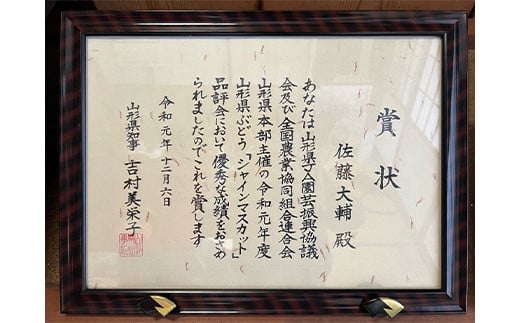 賞状
佐藤大輔殿
あなたは山形県園芸振興協議
会及び全国農業協同組合連合会
山形県本部主催の令和元年度
山形県ぶどう「シャインマスカット」
品評会において優秀な成績をおさめ
られましたのでこれを賞します
令和元年十二月六日
山形県知事 吉村美栄子